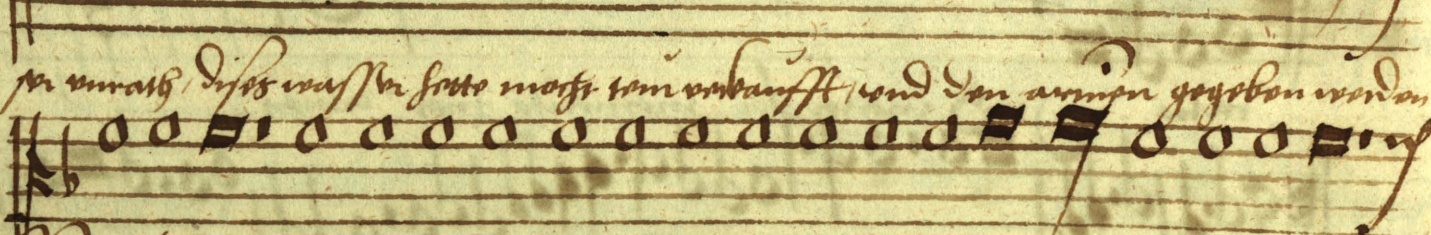 ser vnrath, dises wasser hette mocht teur verkaufft, vnd den armen gegeben werden